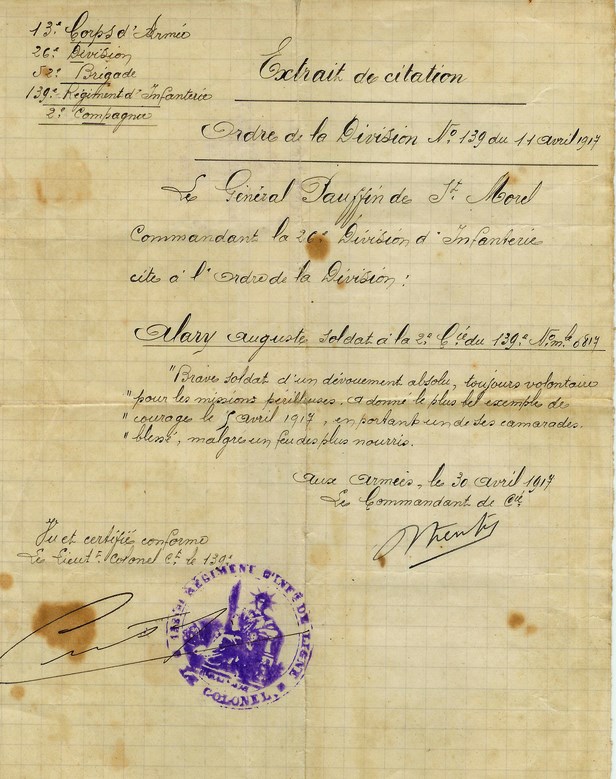 13e Corps d'Armée
26e Division
52e Brigade
139e Régiment d'Infanterie
2e Compagnie
Extrait de citation
Ordre de la Division No. 139 du 11 avril 1917
Le Général Pauffin de St. Morel
Commandant la 26e Division d'Infanterie
cite à l'Ordre de la Division :
Alary Auguste soldat à la 2e Cie du 139e No. mle 0817
"Brave soldat d'un dévouement absolu, toujours volontaire
"pour les missions périlleuses. A donné le plus bel exemple de
"courage le 5 Avril 1917, en portant un de ses camarades
"blessé, malgré un feu des plus nourris.
Aux Armées, le 30 Avril 1917
Le Commandant de Cie
Vu et certifié conforme
Le Lieutt Colonel Ct le 139e
139e RÉGIMENT D'INFIE DE LIGNE
LE COLONEL